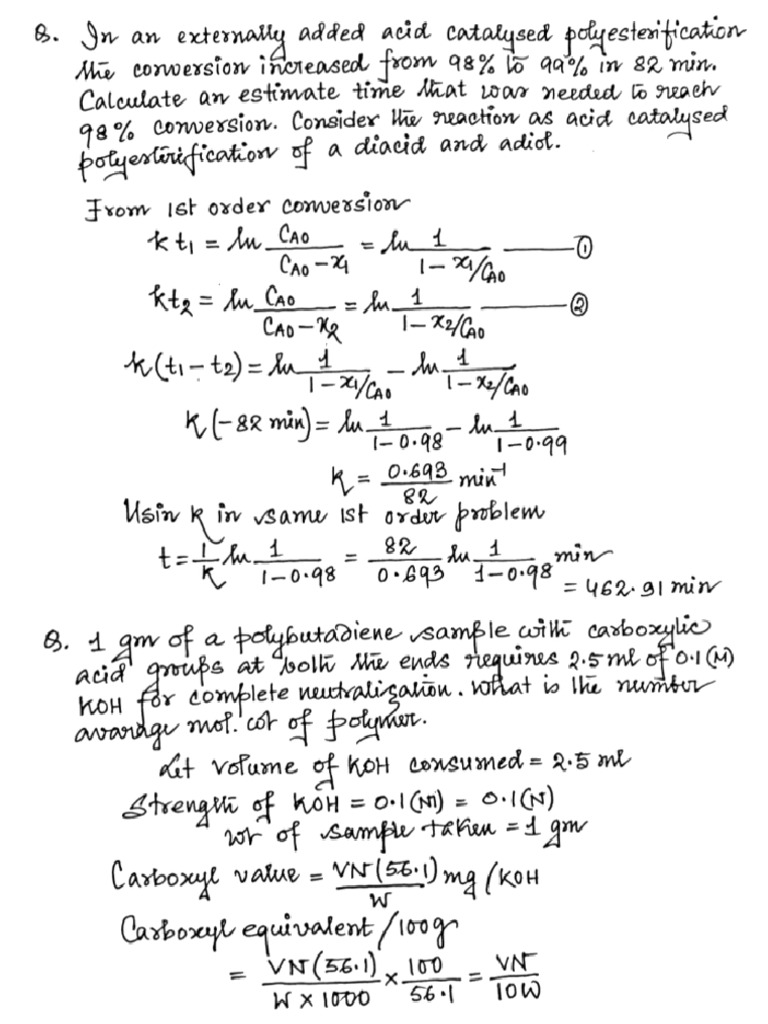 Q. In an externally added acid catalysed polyesterification
the conversion increased from 98% to 99% in 82 min.
Calculate an estimate time that was needed to reach
98% conversion. Consider the reaction as acid catalysed
polyesterification of a diacid and adiol.
From 1st order conversion
kt₁ = ln C_A0/(C_A0 - x₁) = ln 1/(1 - x₁/C_A0) —— ①
kt₂ = ln C_A0/(C_A0 - x₂) = ln 1/(1 - x₂/C_A0) —— ②
k(t₁ - t₂) = ln 1/(1 - x₁/C_A0) - ln 1/(1 - x₂/C_A0)
k(-82 min) = ln 1/(1-0.98) - ln 1/(1-0.99)
k = 0.693/82 min⁻¹
Usin k in same 1st order problem
t = 1/k ln 1/(1-0.98) = 82/0.693 ln 1/(1-0.98) min
= 462.91 min
Q. 1 gm of a polybutadiene sample with carboxylic
acid groups at both the ends requires 2.5 ml of 0.1 (M)
KOH for complete neutralization. What is the number
avarage mol. wt of polymer.
Let volume of KOH consumed = 2.5 ml
Strength of KOH = 0.1(M) = 0.1(N)
wt of sample taken = 1 gm
Carboxyl value = VN(56.1)/W mg/KOH
Carboxyl equivalent/100g
= VN(56.1)/(W x 1000) x 100/56.1 = VN/10W